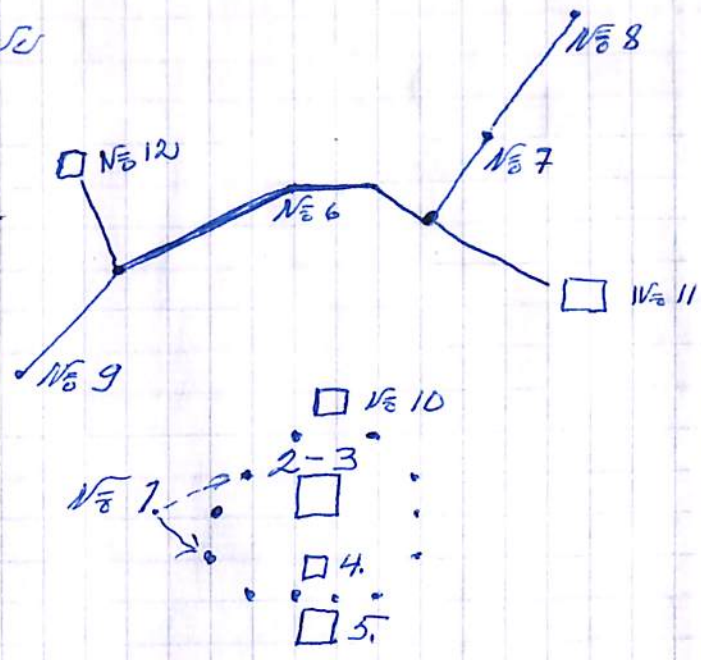 № 8
№ 12
№ 7
№ 6
№ 11
№ 9
№ 10
2-3
№ 1.
4.
5.